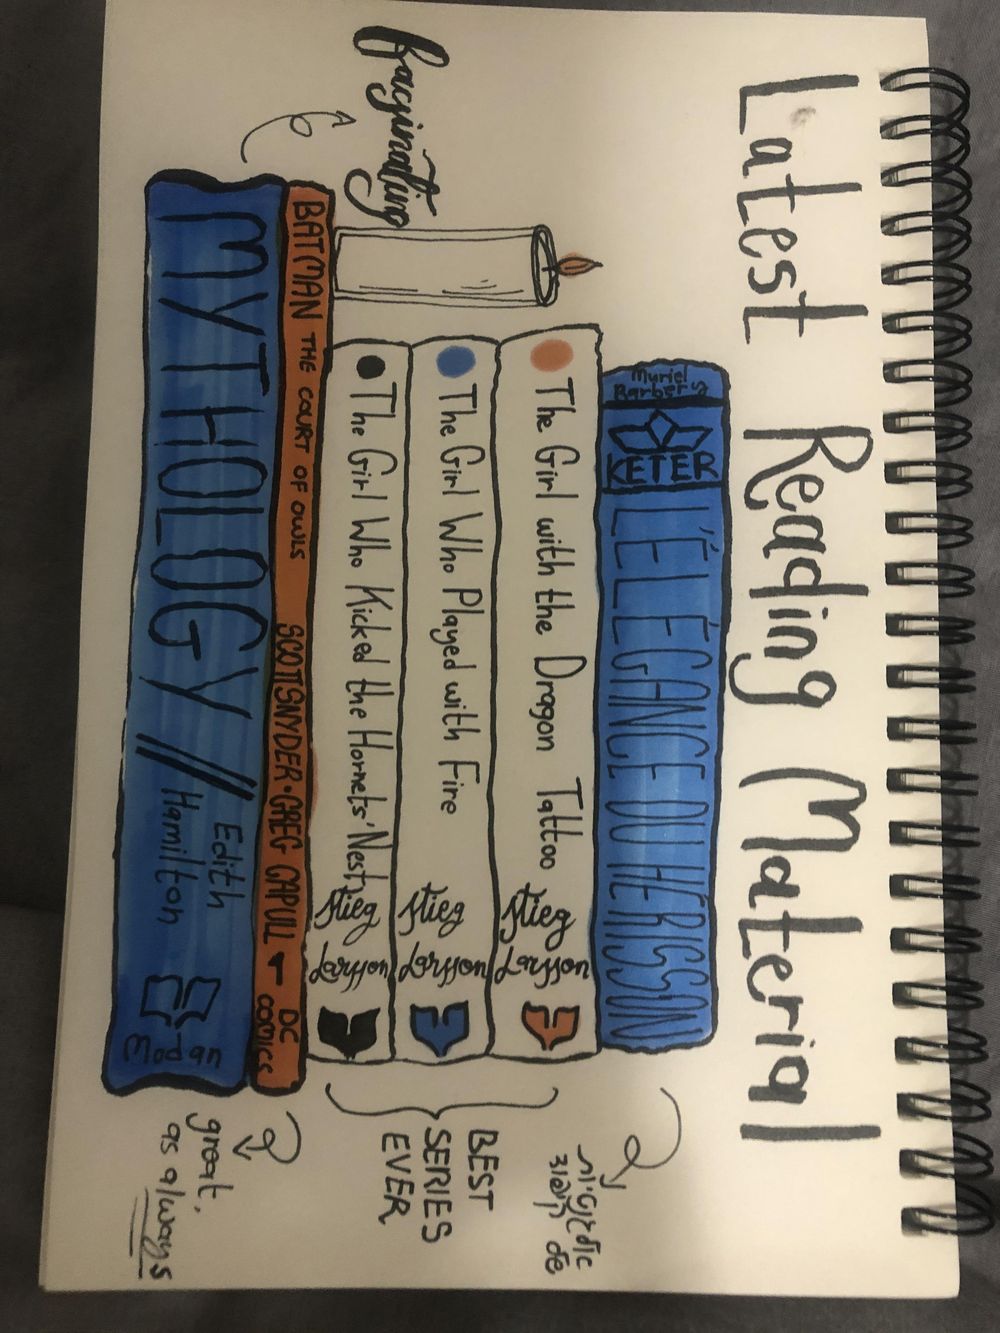 Latest Reading Material
Muriel
Barbery
KETER
L'ÉLÉGANCE DU HERISSON
The Girl with the Dragon Tattoo
Stieg
Larsson
The Girl Who Played with Fire
Stieg
Larsson
BEST
SERIES
EVER
The Girl Who Kicked the Hornets' Nest
Stieg
Larsson
BATMAN THE COURT OF OWLS SCOTT SNYDER • GREG CAPULL DC
COMICS
great,
as always
fascinating
MYTHOLOGY // Edith
Hamilton
Modan